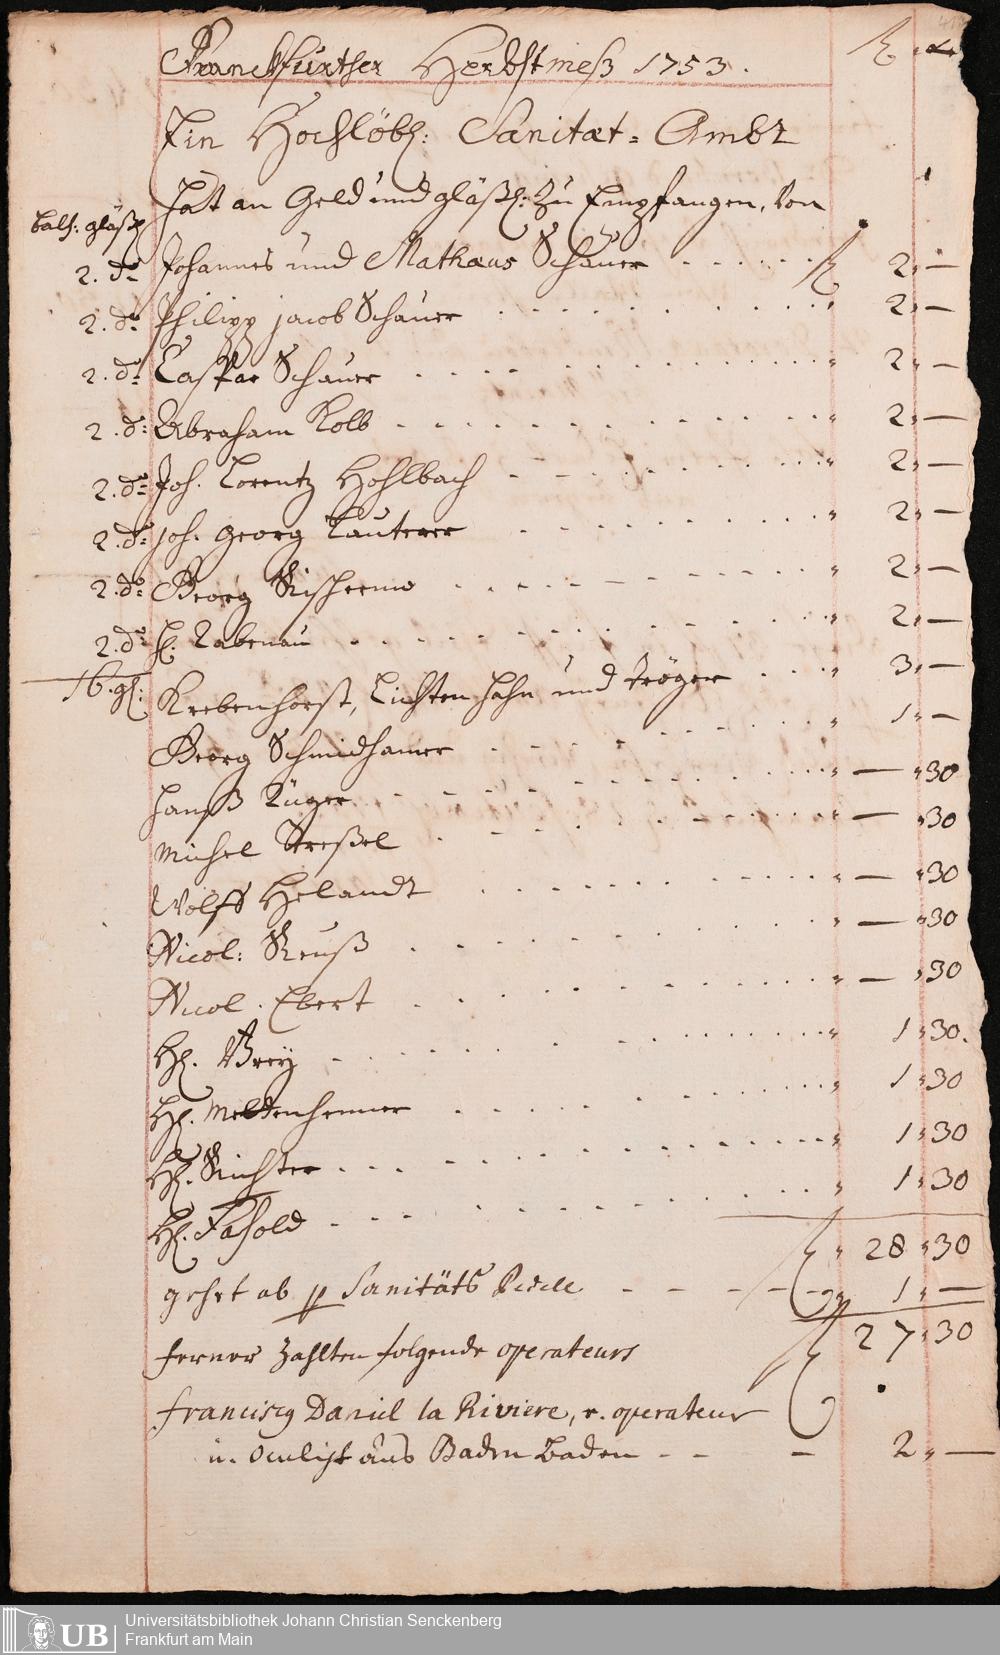 Franckfurther Herbstmeß 1753.
Ein Hochlöbl: Sanitæt-Ambt
hat an Geld und gläßl: zu Empfangen, von
bals: gläßl
2. do Johannes und Mathæus Schauer . . . . . . f 2 „ —
2. do Philipp jacob Schauer . . . . . . „ 2 „ —
2. do Caspar Schauer . . . . . . „ 2 „ —
2. do Abraham Kolb . . . . . . „ 2 „ —
2. do Joh. Lorentz Hohlbach . . . . . . „ 2 „ —
2. do joh. Georg Lauterer . . . . . . „ 2 „ —
2. do Georg . . . . . . „ 2 „ —
2. do H. Rabenau . . . . . . „ 2 „ —
16. gl: Krebenhorst, Lichtenhahn und Tröger . . . „ 3 „ —
Georg Schmidhamer . . . . . . „ 1 „ —
Hanß Rüger . . . . . . „ — „ 30
Michel Streßel . . . . . . „ — „ 30
Wolff Helandt . . . . . . „ — „ 30
Nicol: Reuß . . . . . . „ — „ 30
Nicol. Ebert . . . . . . „ — „ 30
H. Grey . . . . . . „ 1 „ 30.
H. . . . . . . „ 1 „ 30
H. Richter . . . . . . „ 1 „ 30
H. Fasold . . . . . . „ 1 „ 30
f „ 28 „ 30
gehet ab p Sanitäts Pedell — — — — „ 1 „ —
f 27 „ 30
ferner zahlten folgende operateurs
Franciscq Daniel la Riviere, r. operateur
u. Oculist aus Baden Baden — — — 2 „ —
UB
Universitätsbibliothek Johann Christian Senckenberg
Frankfurt am Main